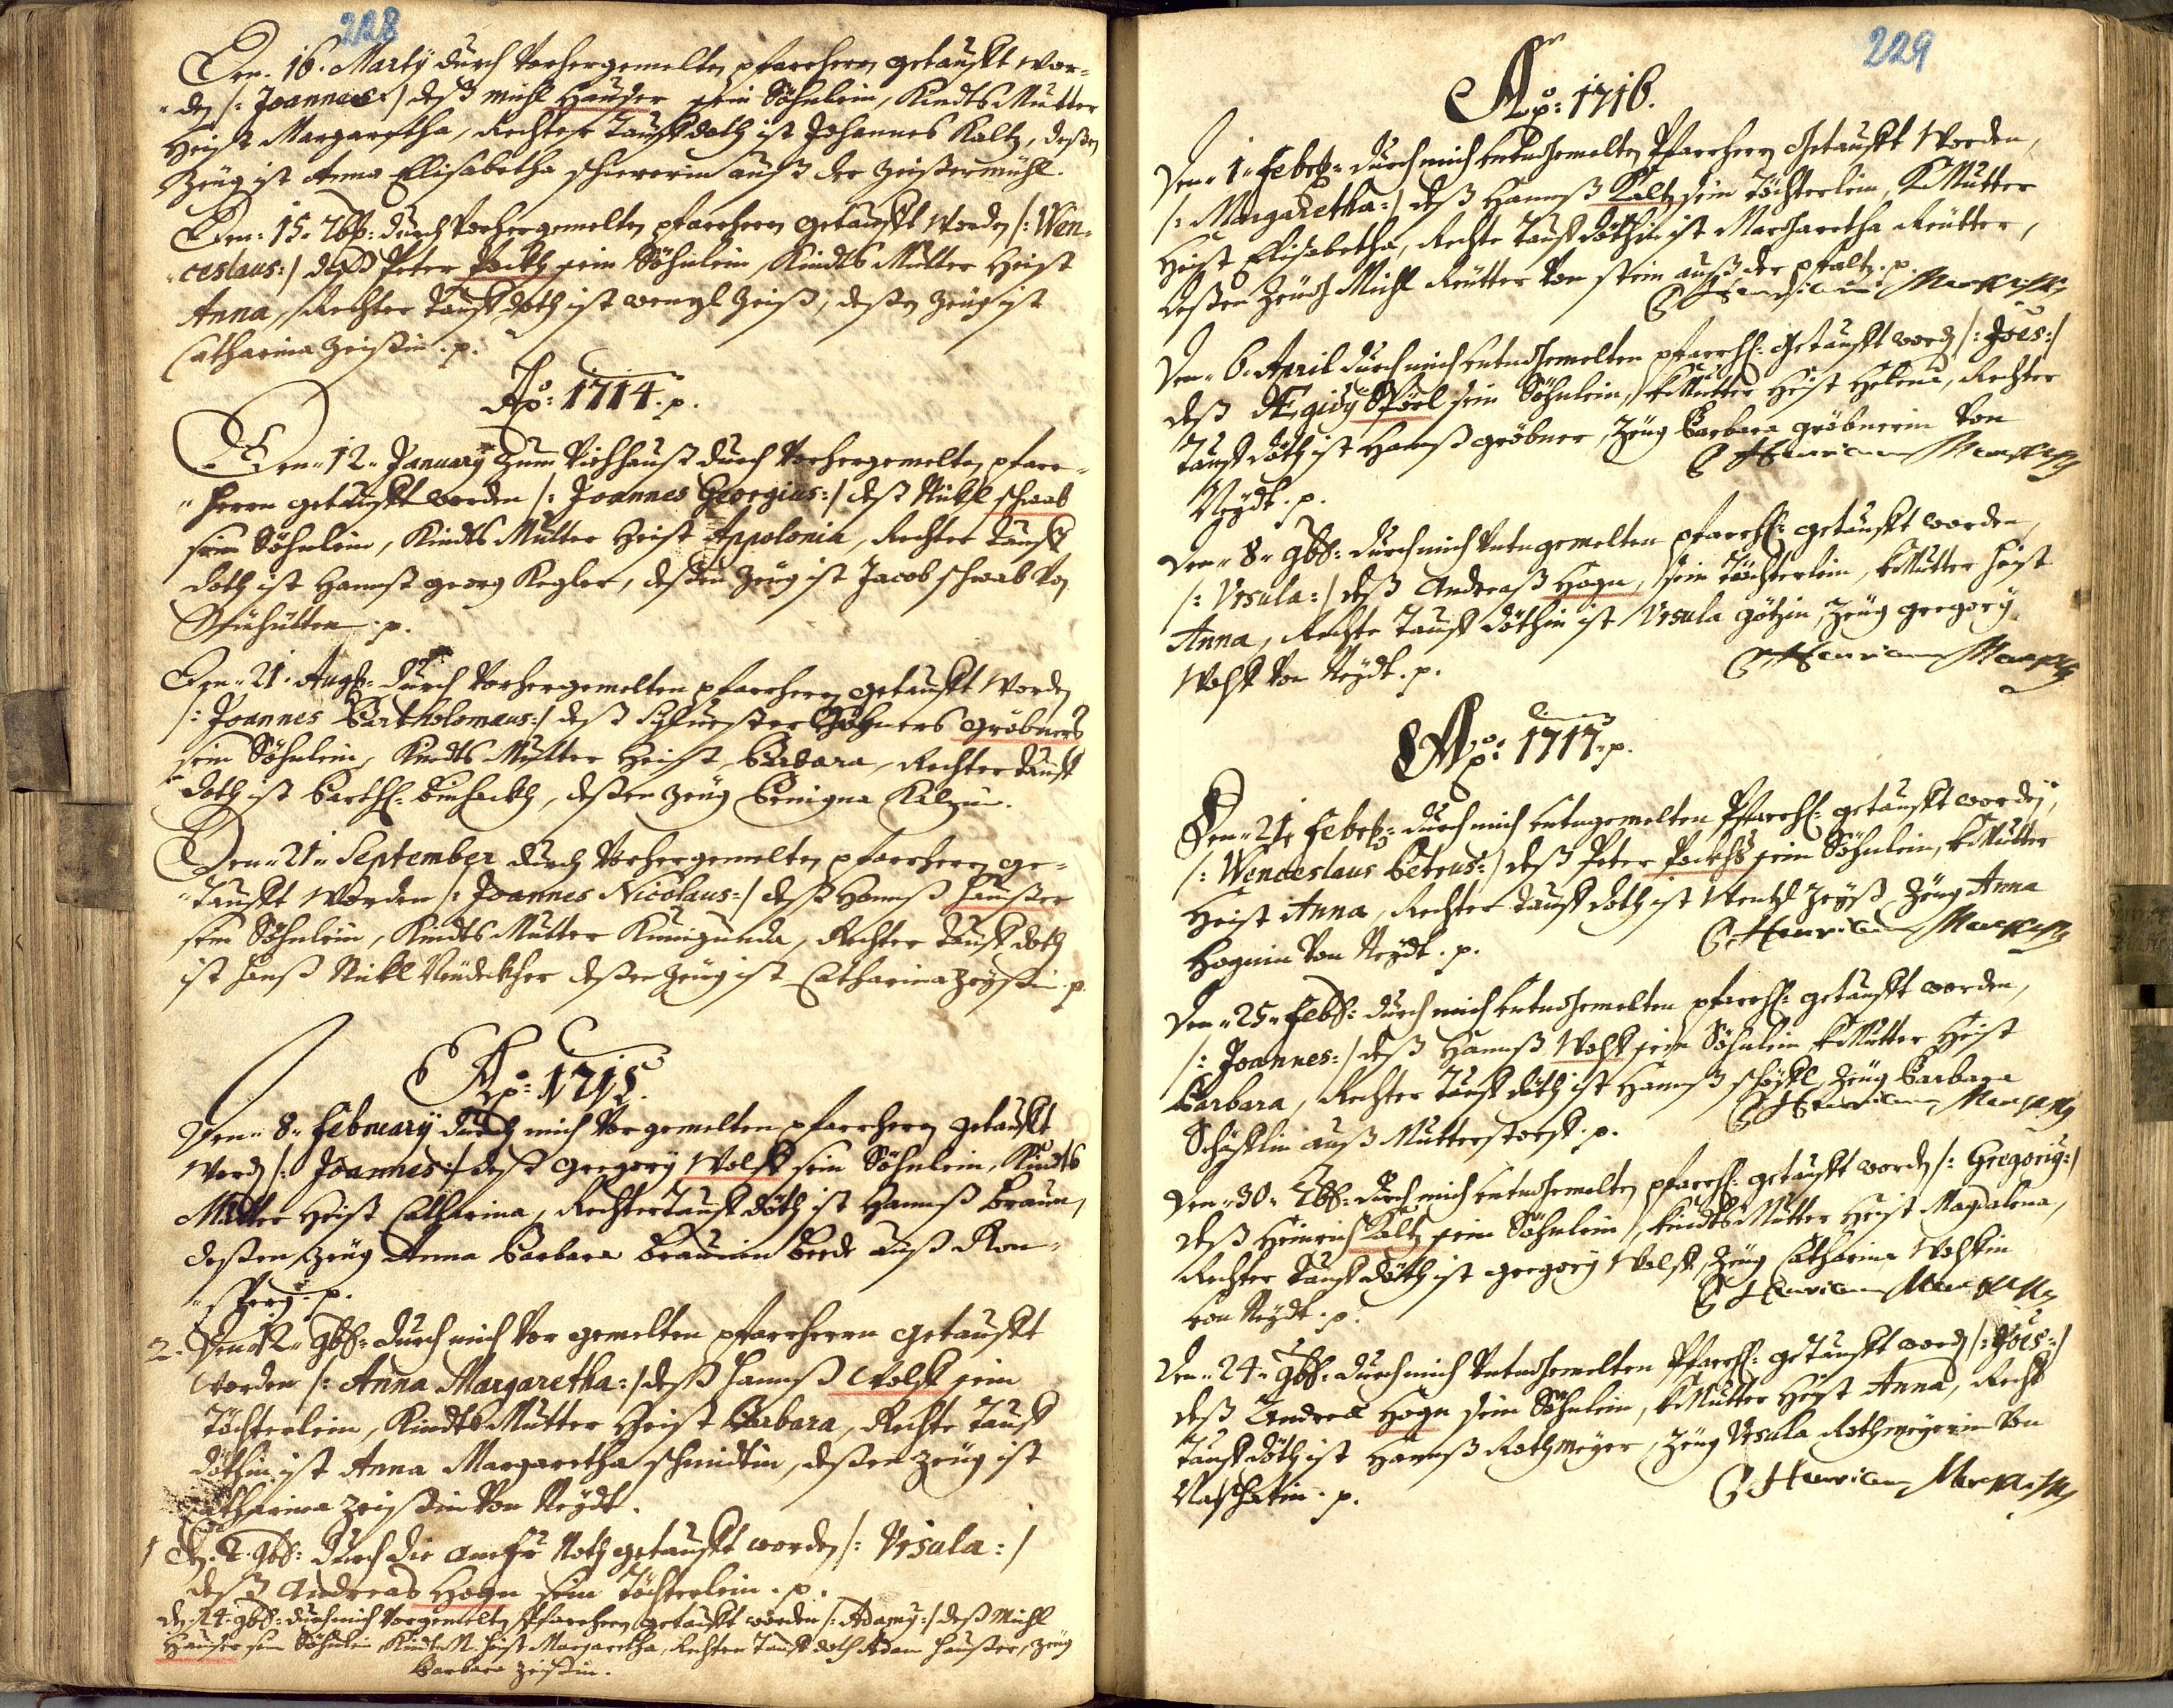 228
Den. 16. Marty durch Vorhergemelten pfarrherrn getaufft wor-
den /: Joannes :/ deß michl Hauser sein Söhnlein, Kindts Mutter
Heist Margaretha, Rechter Tauff doth ist Johannes Kaltz, deßen
Zeug ist Anna Elisabetha auß der Zeißermühl.
Den. 15. 7br: durch Vorhergemelten pfarrherrn getaufft worden /: Wen-
ceslaus :/ deß Peter Pockh sein Söhnlein Kindts Mutter Heist
Anna, Rechter Tauff doth ist wenzl Zeiß, deßen Zeug ist
Catharina Zeißin. p.
Ao: 1714. p.
Den 12. January Zum Viehhauß durch Vorhergemelten pfarr-
herrn getaufft worden /: Joannes Georgius :/ deß Nickl schwab
sein Söhnlein, Kindts Mutter Heist Appolonia, Rechter Tauff
doth ist Hannß georg Kogler, deßen Zeug ist Jacob schwab Von
. p.
Den 21. Augs: durch Vorhergemelten pfarrherrn getaufft worden
/: Joannes Bartholomaus :/ deß gröbners
sein Söhnlein, Kindts Mutter Heist, Barbara, Rechter Tauff
doth ist barthl: , deßen Zeug Benigna .
Den 21. September durch Vorhergemelten pfarrherrn ge-
taufft worden /: Joannes Nicolaus :/ deß Hannß Haußer
sein Söhnlein, Kindts Mutter Kunigunda, Rechter Tauff doth
ist Hanß Nickl deßen Zeug ist Catharina Zeyßin. p.
Ao: 1715.
Den 8. February durch mich Vorgemelten pfarrherrn getaufft
Word /: Joannes :/ deß Gregory Wolff sein Söhnlein, Kindts
Mutter Heist Catharina, Rechter Tauff döth ist Hannß Braun,
deßen Zeug Anna Barbara Braunin beede auß Ron-
sperg. p.
2. Den 12. 9br: durch mich Vor gemelten pfarrherrn getaufft
worden /: Anna Margaretha :/ deß Hannß Wolff sein
Töchterlein, Kindts Mutter Heist Barbara, Rechte Tauff
döthin ist Anna Margaretha schmidtin, deßen Zeug ist
Catharina Zeißin Von Neydt.
1 Den. 2. 9br: durch die Noth getaufft worden /: Vrsula :/
deß Andreas Hogn sein Töchterlein. p.
Den 24. 9br: durch mich Vorgemelten Pfarrherrn getaufft worden /: Adamy :/ deß Michl
Hauser sein Söhnlein Kindts M. heist Margaretha, Rechter Tauff doth Adam Haußer, Zeug
Barbara Zeißin.
229
Ao: 1716.
Den 1. Febr: durch mich Pfarrherrn getaufft Worden,
/: Margaretha :/ deß Hannß Kaltz sein Töchterlein, K Mutter
Heist Elisabetha, Rechte Tauff döthin ist Margaretha Reutter,
deßen Zeuch Michl Reutter Von stein auß der pfaltz. p.
Den 6. April durch mich pfarrh: getaufft word /: Joes :/
deß Ægidy sein Söhnlein, K Mutter Heist Helena, Rechter
Tauff döth ist Hannß gröbner, Zeug Barbara gröbnerin Von
Neydt. p.
Den 8. 9br: durch mich pfarrh: getaufft worden,
/: Vrsula :/ deß Andreaß Hogn, sein Töchterlein, K Mutter heist
Anna, Rechte Tauff döthin ist Vrsula götzin, Zeug gregory
Wolff Von Neydt. p.
Ao: 1717. p.
Den 21. Febr: durch mich Pfarrh: getaufft worden,
/: Wenceslaus Petrus :/ deß Peter Pockhß sein Söhnlein, K Mutter
Heist Anna, Rechter Tauff doth ist Wentzl Zeyß, Zeug Anna
Hognin Von Neydt. p.
Den 25. Febr: durch mich pfarrh: getaufft worden,
/: Joannes :/ deß Hannß Wolff sein Söhnlein K Mutter Heist
Barbara, Rechter Tauff döth ist Hannß , Zeug Barbara
auß Mutterstorff. p.
Den 30. durch mich pfarrh: getaufft worden /: Gregoriy :/
deß Heinrich Kaltz sein Söhnlein, Kindts Mutter Heist Magdalena,
Rechter Tauff döth ist gregory Wolff, Zeug Catharina Wolffin
von Neydt. p.
Den 24. 9br: durch mich Pfarrh: getaufft word /: Joes :/
deß Andreas Hogn sein Söhnlein, K Mutter Heist Anna, Recht
Tauff döth ist Hannß Rothmeyer, Zeug Vrsula Rothmeyerin Von
. p.